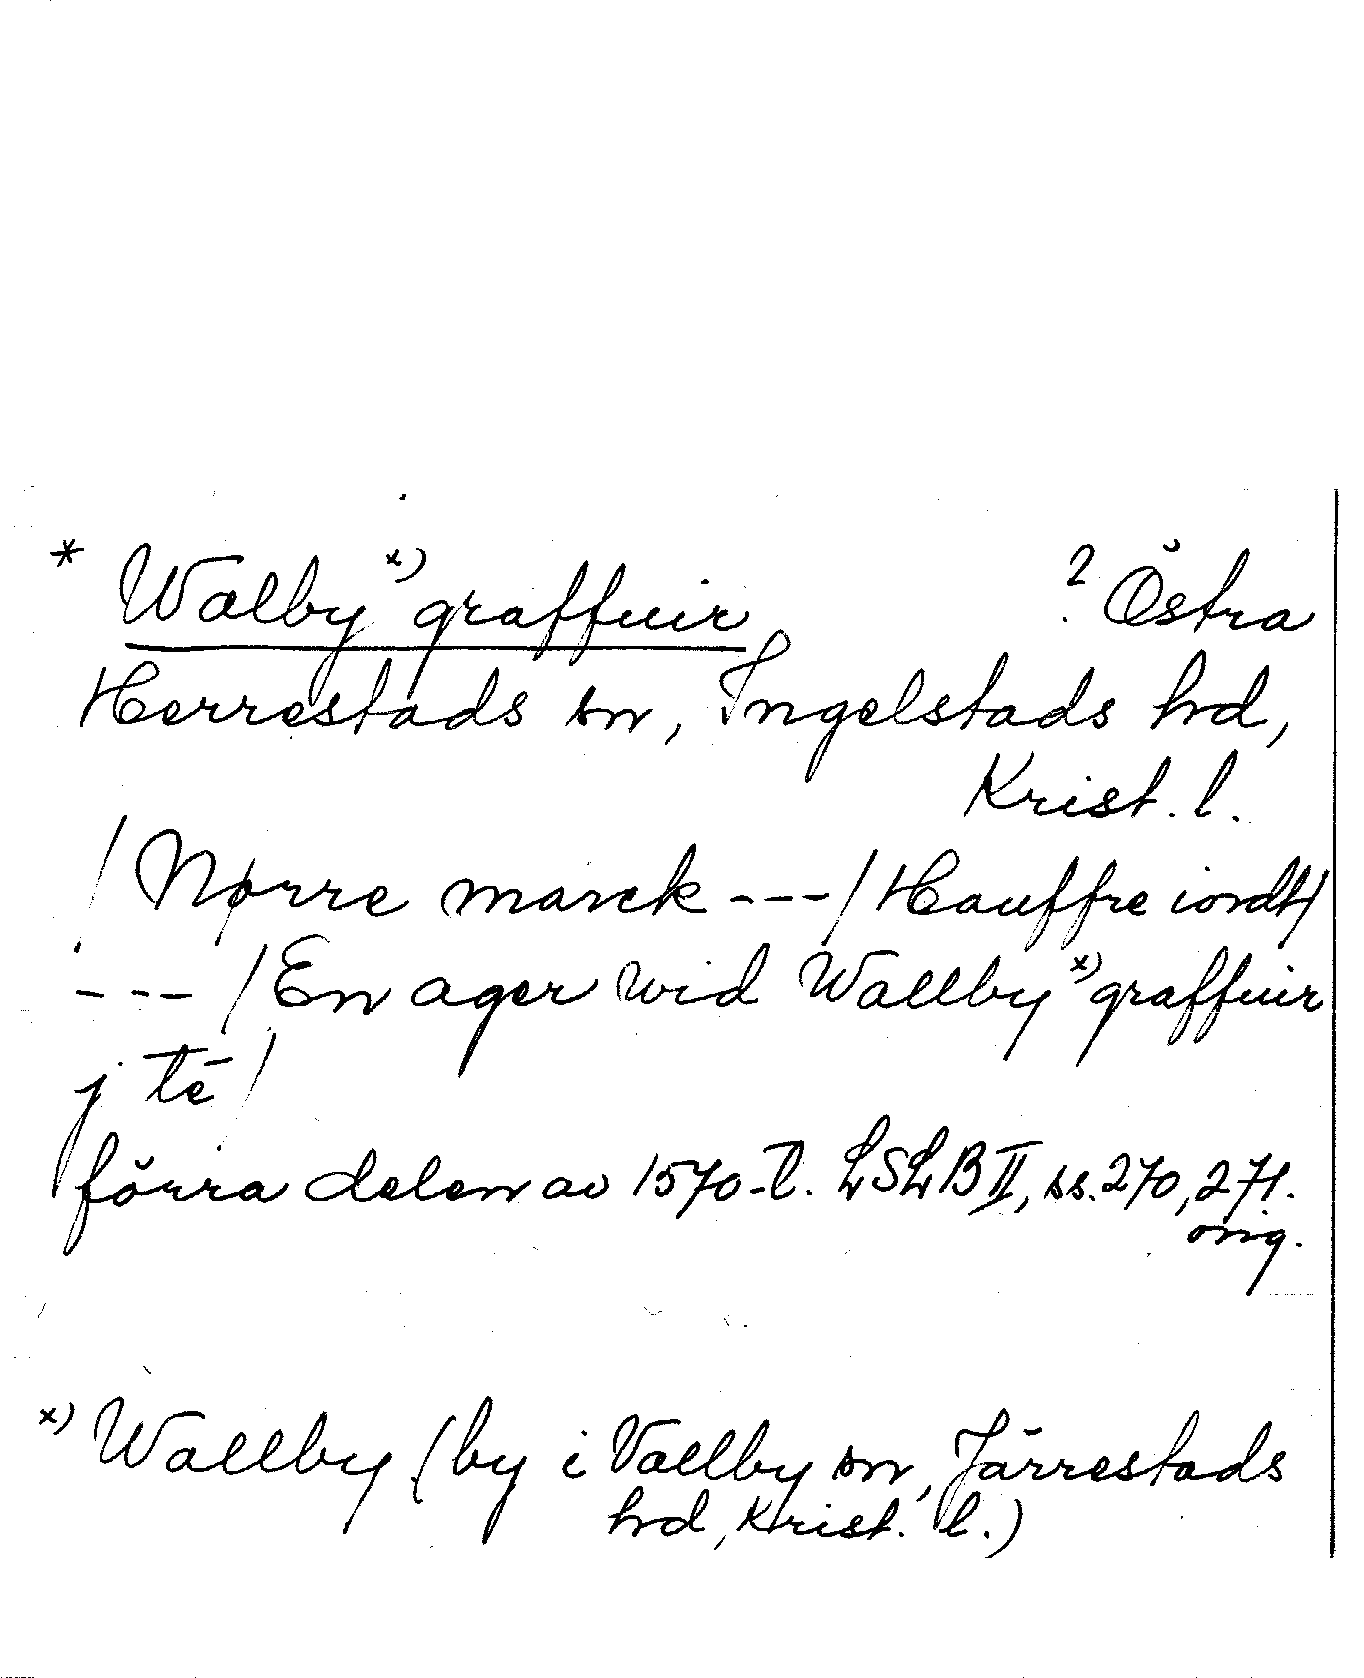 * Walby x) graffuir ? Östra
Herrestads sn, Ingelstads hd,
Krist. l.
/ Nørre marck --- / Hauffre iordt /
--- / En ager wid Wallby x) graffuir
j tē /
förra delen av 1570-t. LSLB II, ss. 270, 271.
orig.
x) Wallby (by i Vallby sn, Järrestads
hd, Krist. l.)